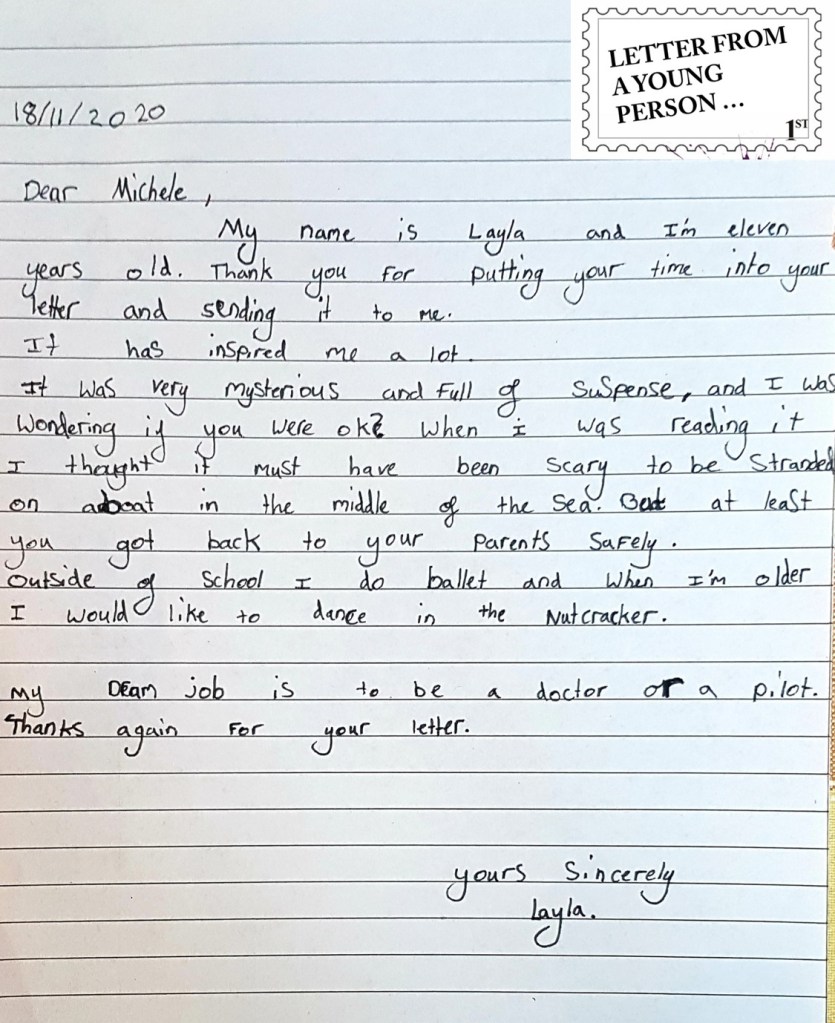 LETTER FROM
A YOUNG
PERSON ...
1ST
18/11/2020
Dear Michele,
My name is Layla and I'm eleven
years old. Thank you for putting your time into your
letter and sending it to me.
It has inspired me a lot.
It was very mysterious and full of suspense, and I was
Wondering if you were ok? When i was reading it
I thought it must have been scary to be stranded
on a boat in the middle of the sea. But at least
you got back to your parents safely.
Outside of school I do ballet and when I'm older
I would like to dance in the Nutcracker.
My Deam job is to be a doctor or a pilot.
Thanks again for your letter.
yours Sincerely
Layla.